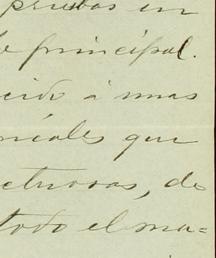 pruebas en
principal.
cido á unas
niales que
ctuosas, de
todo el ma=